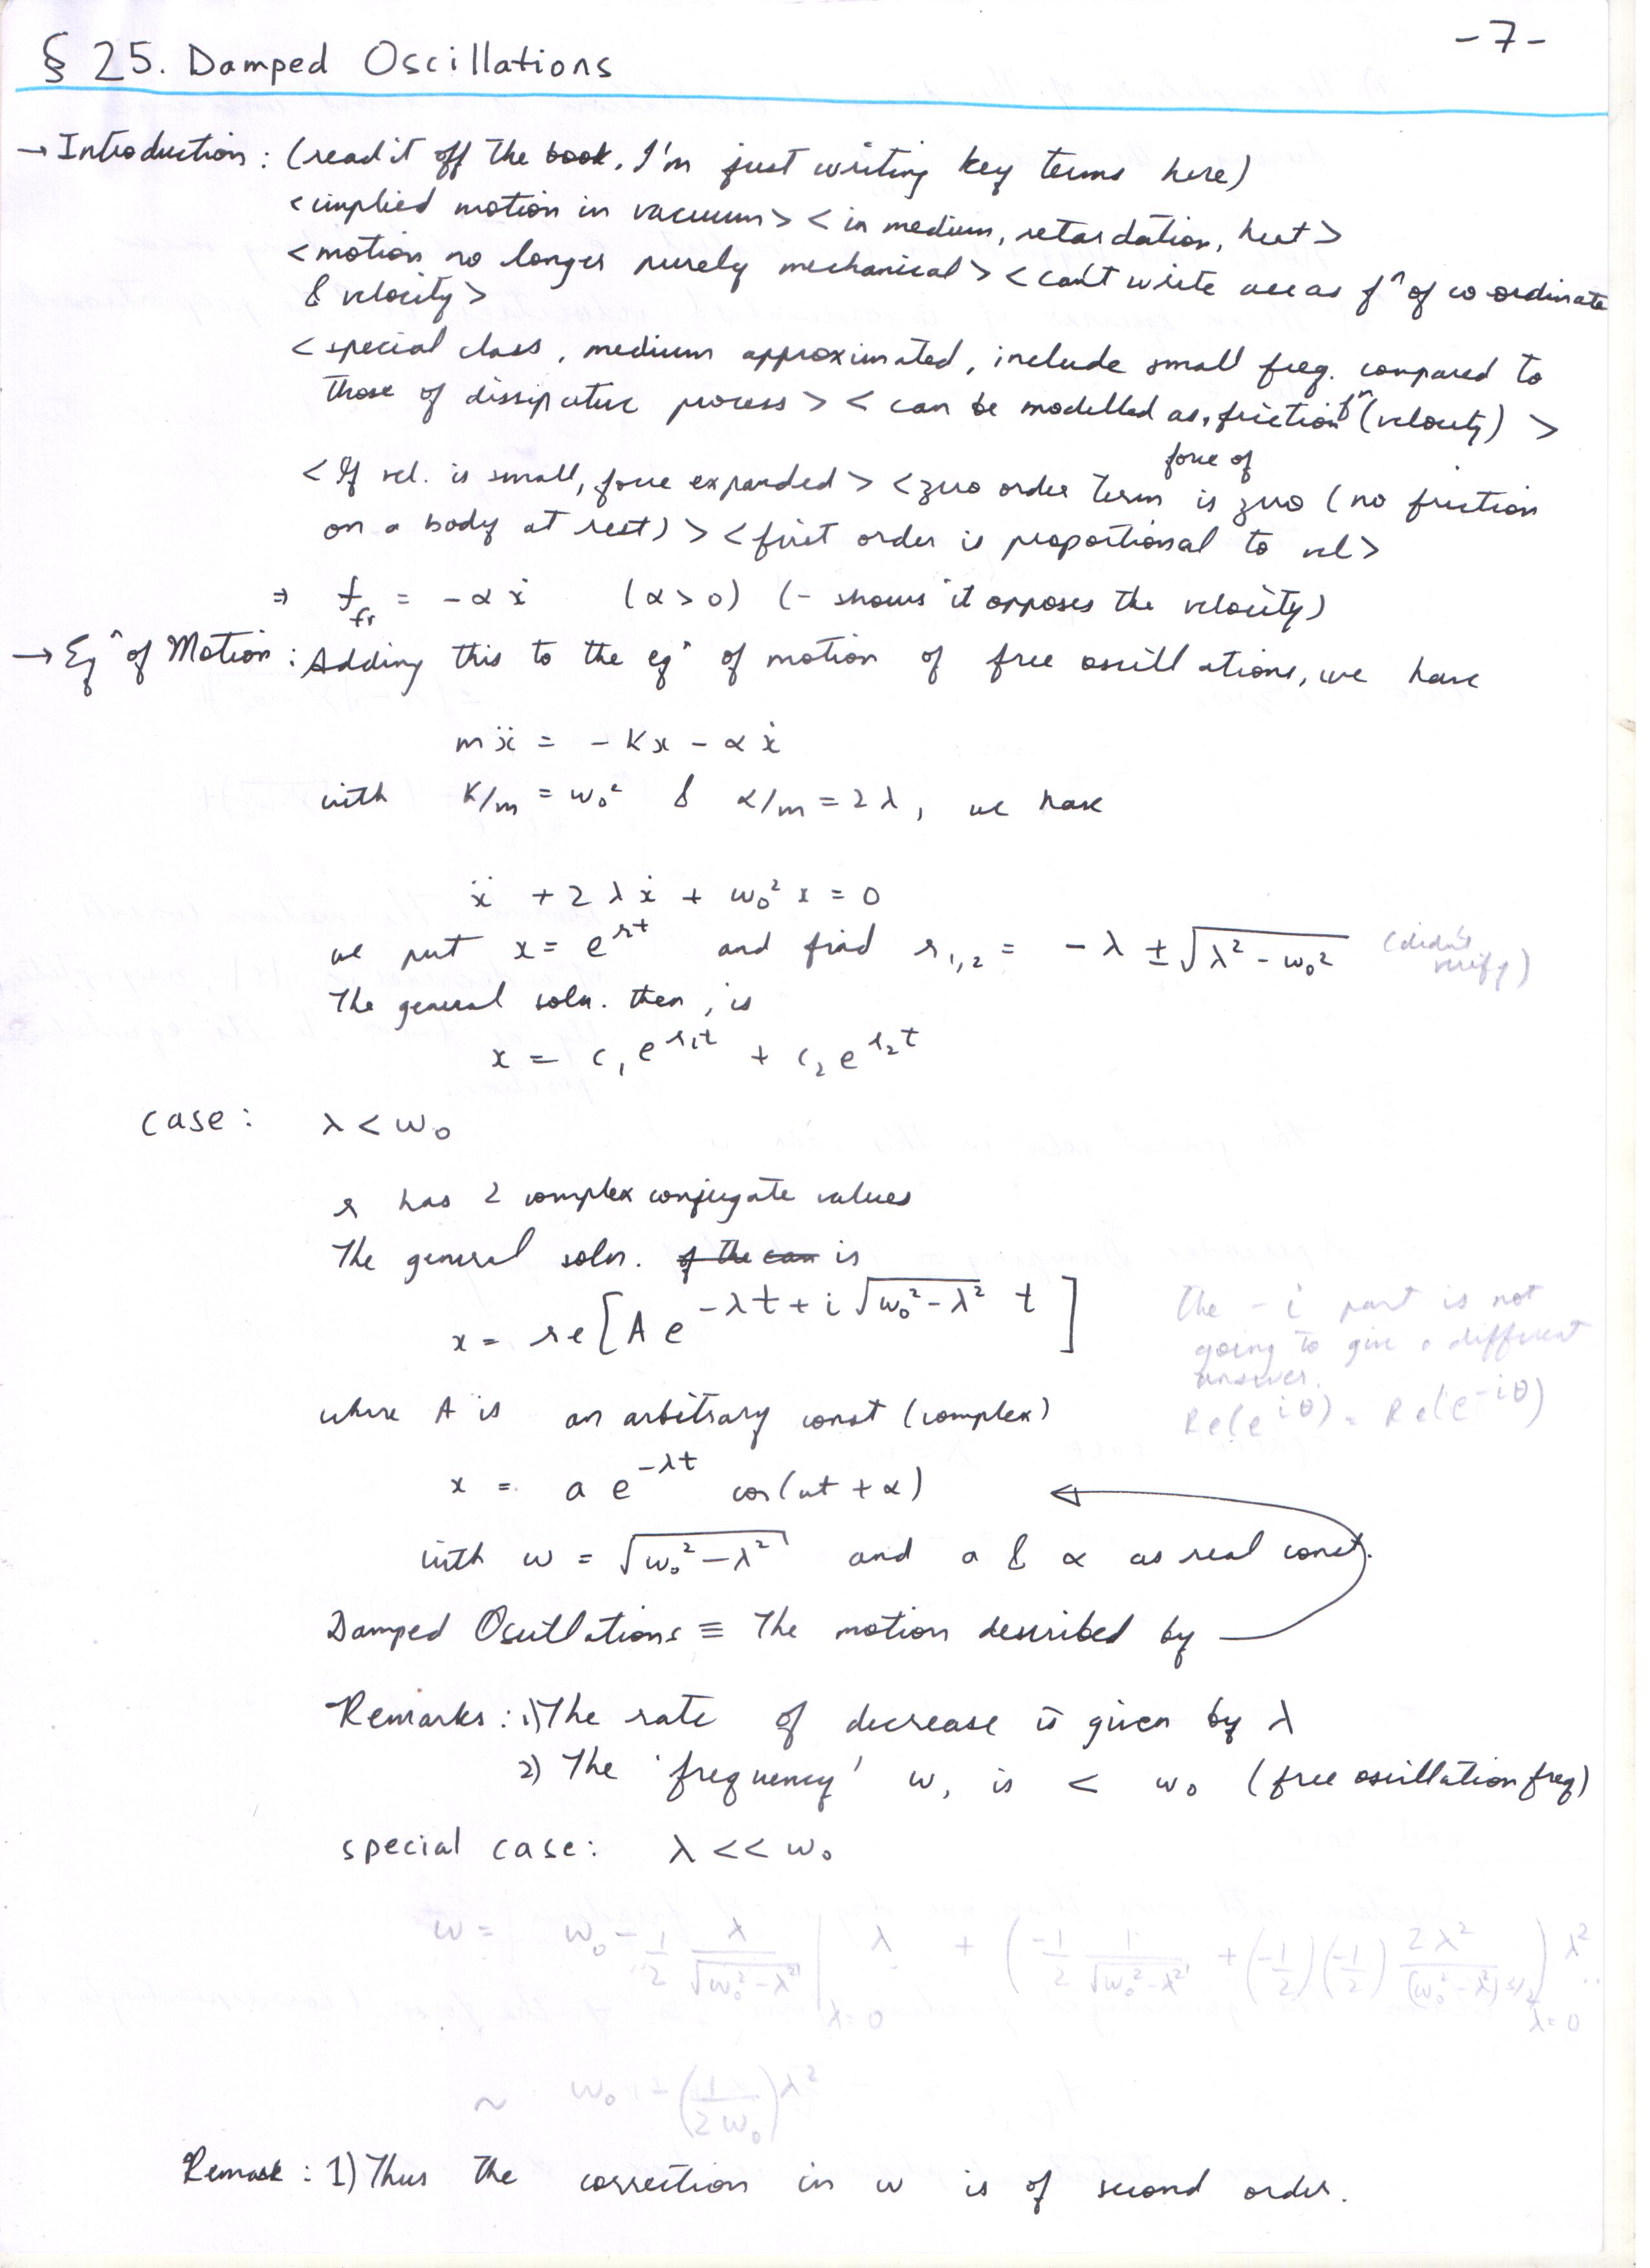 -7-
§ 25. Damped Oscillations
→ Introduction : (read it off the book, I'm just writing key terms here)
<implied motion in vacuum> < in medium, retardation, heat >
<motion no longer purely mechanical> < can't write acc as fⁿ of co-ordinate
& velocity>
< special class, medium approximated, include small freq. compared to
those of dissipative process > < can be modelled as, friction fⁿ (velocity) >
force of
< If vel. is small, force expanded > < zero order term is zero ( no friction
on a body at rest) > < first order is proportional to vel >
⇒ f_fr = -αẋ (α > 0) (- shows it opposes the velocity)
→ Eqⁿ of Motion : Adding this to the eqⁿ of motion of free oscillations, we have
mẍ = -Kx - αẋ
with K/m = ω₀² & α/m = 2λ, we have
ẍ + 2λẋ + ω₀² x = 0
we put x = e^{rt} and find r₁,₂ = -λ ± √(λ² - ω₀²) (didn't
verify)
The general soln. then, is
x = c₁e^{r₁t} + c₂e^{r₂t}
case: λ < ω₀
r has 2 complex conjugate values
The general soln. is
x = re[A e^{-λt + i√(ω₀² - λ²) t}]
The -i part is not
going to give a different
answer.
Re(e^{iθ}) = Re(e^{-iθ})
where A is an arbitrary const (complex)
x = a e^{-λt} cos(ωt + α)
with ω = √(ω₀² - λ²) and a & α as real const.
Damped Oscillations ≡ The motion described by
Remarks : 1) The rate of decrease is given by λ
2) The 'frequency' ω, is < ω₀ (free oscillation freq)
special case: λ << ω₀
ω = ω₀ - 1/2 λ/√(ω₀² - λ²) |λ=0 λ + (-1/2 1/√(ω₀² - λ²) + (-1/2)(-1/2) 2λ²/(ω₀² - λ²)^{3/2})λ=0 λ² ..
~ ω₀ - (1/2ω₀)λ²
Remark : 1) Thus the correction in ω is of second order.